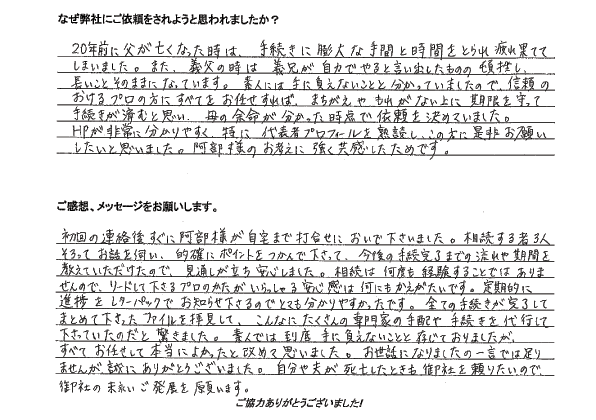 なぜ弊社にご依頼をされようと思われましたか？
20年前に父が亡くなった時は、手続きに膨大な手間と時間をとられ疲れ果てて
しまいました。また、義父の時は義兄が自力でやると言い出したものの頓挫し、
長いことそのままになっています。素人には手に負えないことと分かっていましたので、信頼の
おけるプロの方にすべてをお任せすれば、まちがえやもれがない上に期限を守って
手続きが済むと思い、母の余命が分かった時点で依頼を決めていました。
HPが非常に分かりやすく、特に代表者プロフィールを熟読し、この方に是非お願い
したいと思いました。阿部様のお考えに強く共感したためです。
ご感想、メッセージをお願いします。
初回の連絡後すぐに阿部様が自宅まで打合せにおいで下さいました。相続する者3人
そろってお話を伺い、的確にポイントをつかんで下さって、今後の手続完了までの流れや期間を
教えていただけたので、見通しが立ち安心しました。相続は何度も経験することではありま
せんので、リードして下さるプロのかたがいらっしゃる安心感は何にもかえがたいです。定期的に
進捗をレターパックでお知らせ下さるのでとても分かりやすかったです。全ての手続きが完了して
まとめて下さったファイルを拝見して、こんなにたくさんの専門家の手配や手続きを代行して
下さっていたのだと驚きました。素人では到底手に負えないことと存じておりましたが、
すべてお任せして本当によかったと改めて思いました。お世話になりましたの一言では足り
ませんが、誠にありがとうございました。自分や夫が死亡したときも御社を頼りたいので、
御社の末永いご発展を願います。
ご協力ありがとうございました！